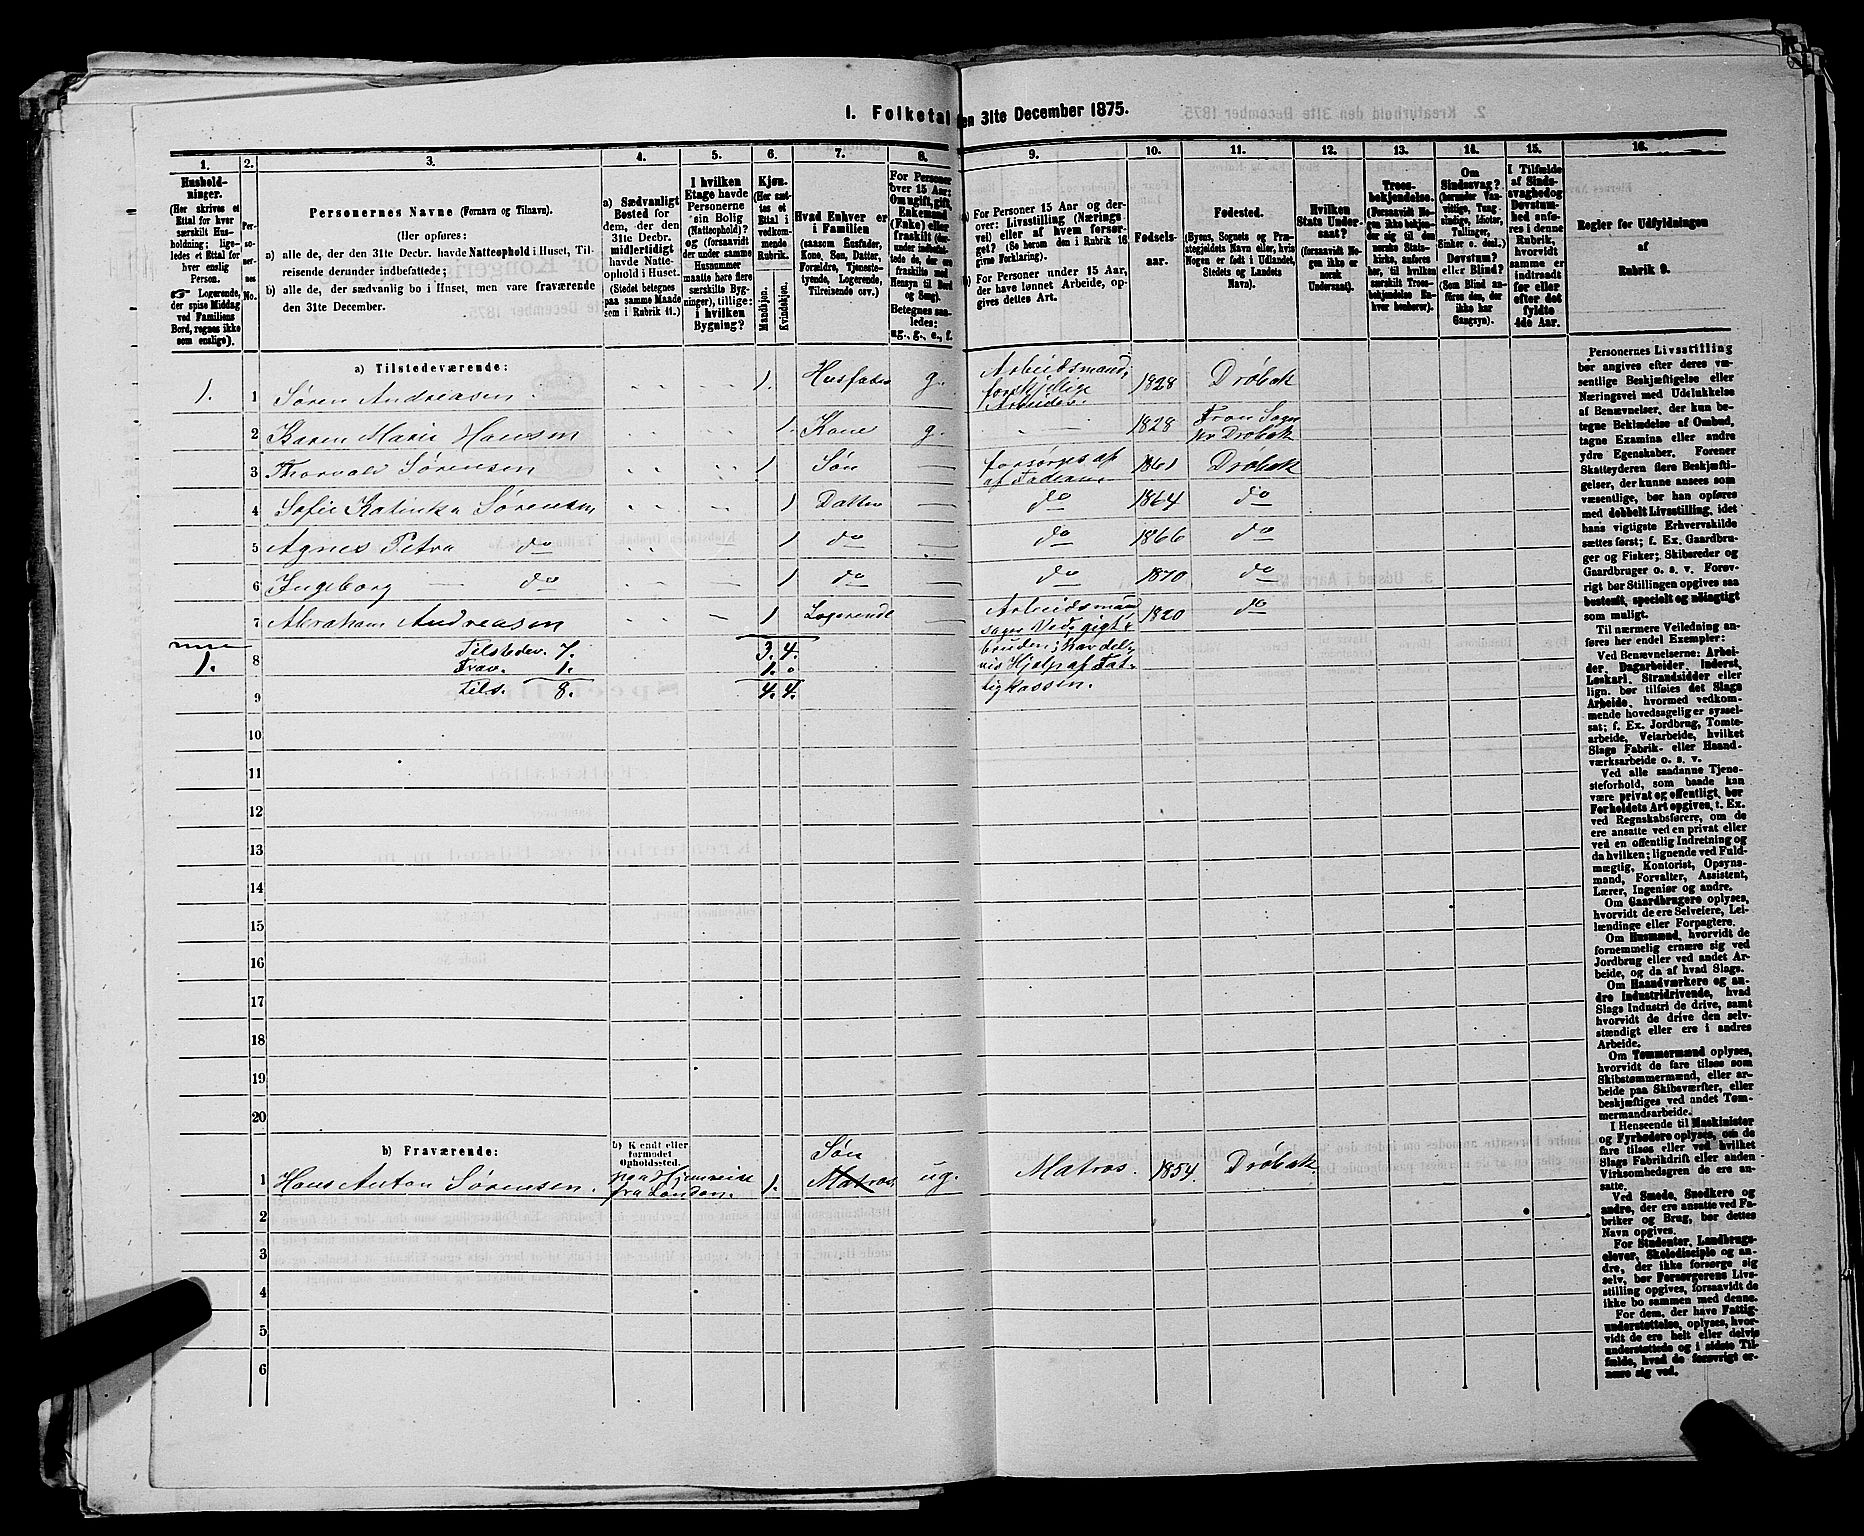 1. Folketal den 31te December 1875.
1. 2. 3. 4. 5. 6. 7. 8. 9. 10. 11. 12. 13. 14. 15. 16.
Hushold-
ninger.
(Her skrives et
Ettal for hver
særskilt Hus-
holdning; lige-
ledes et Ettal for
hver enslig
Person.
☞ Logerende,
der spise Middag
ved Familiens
Bord, regnes ikke
som enslige).
Per-
so-
ner-
nes
No.
Personernes Navne (Fornavn og Tilnavn).
(Her opføres:
a) alle de, der den 31te Decbr. havde Natteophold i Huset, Til-
reisende derunder indbefattede;
b) alle de, der sædvanlig bo i Huset, men vare fraværende
den 31te December.
a) Sædvanligt
Bosted for
dem, der den
31te Decbr.
midlertidigt
havde Natte-
ophold i Huset.
(Stedet betegnes
paa samme Maade
som i Rubrik 11.)
I hvilken
Etage havde
Personerne
sin Bolig
(Natteophold)?
og (forsaavidt
der under samme
Husnummer
maatte høre flere
særskilte Byg-
ninger), tillige:
i hvilken
Bygning?
Kjøn.
(Her sæt-
tes et
Ettal i
vedkom-
mende
Rubrik.
Mandkjøn.
Kvindekjøn.
Hvad Enhver er
i Familien
(saasom Husfader,
Kone, Søn, Datter,
Forældre, Tjeneste-
tyende, Logerende,
Tilreisende osv.)
For Personer
over 15 Aar:
Om ugift, gift,
Enkemand
(Enke) eller
fraskilt (der-
under indbefat-
tede de, en ere
fraskilte med
Hensyn til Bord
og Seng).
Betegnes saa-
ledes:
ug., g., e., f.
a) For Personer 15 Aar og der-
over: Livsstilling (Nærings-
vei) eller af hvem forsør-
get? (Se herom den i Rubrik 16
givne Forklaring).
b) For Personer under 15 Aar,
der have lønnet Arbeide, op-
gives dettes Art.
Fødsels-
aar.
Fødested.
(Byens, Sognets og Præ-
stegjeldets Navn eller, hvis
Nogen er født i Udlandet,
Stedets og Landets
Navn).
Hvilken
Stats Under-
saat?
(forsaavidt No-
gen ikke er
norsk
Undersaat).
Troes-
bekjendelse.
(Forsaavidt No-
gen ikke bekjen-
der sig til den
norske Stats-
kirke, anføres
her, til hvilken
særskilt Troes-
bekjendelse En-
hver henhører).
Om
Sindssvag?
(herunder Van-
vittige, Tung-
sindige, Idioter,
Tullinger,
Sinker o. desl.)
Døvstum?
eller Blind?
(Som Blind an-
føres den, der
ikke har
Gangsyn).
I Tilfælde
af Sinds-
svaghed og
Døvstum-
hed anfø-
res i denne
Rubrik,
hvorvidt
samme er
indtraadt
før eller
efter det
fyldte
4de Aar.
Regler for Udfyldningen
af
Rubrik 9.
a) Tilstedeværende:
1. 1 Søren Andreasen. 1. Husfader g. Arbeidsmand, forskjellige Arbeider. 1828 Drøbak
2 Karen Marie Hansen 1. Kone g. 1828 Fron Sogn pr Drøbak
3 Thorvald Sørensen 1 Søn forsørges af af Faderen 1861 Drøbak
4 Sofie Katinka Sørensen 1 Datter do 1864 do
5 Agnes Petra do 1 do do 1866 do
6 Ingeborg do 1 do do 1870 do
7 Abraham Andreasen 1 Logerende Arbeidsmand 1820 do
8 Tilstedev. 7. 3. 4.
1. Frav. 1. 1. 0
9 Tils. 8. 4. 4.
Ved, gigt-
bruden; har del-
vis Hjelp af Fat-
tigkassen.
10
11
12
13
14
15
16
17
18
19
20
b) Fraværende:
b) Kjendt eller
formodet
Opholdssted.
1 Hans Anton Sørensen. paa Hjemreise fra London. 1. Søn Matros ug. Matros. 1854. Drøbak.
2
3
4
5
6
Personernes Livsstilling
bør angives efter deres væ-
sentlige Beskjæftigelse eller
Næringsvei med Udelukkelse
af Benævnelser, der kun be-
tegne Beklædelse af Ombud,
tagne Examina eller andre
ydre Egenskaber. Forener
Skatteyderen flere Beskjæfti-
gelser, der kunne ansees som
væsentlige, bør han opføres
med dobbelt Livsstilling, idet
hans vigtigste Erhvervskilde
sættes først; f. Ex. Gaardbru-
ger og Fisker; Skibsreder og
Gaardbruger o. s. v. Forøv-
rigt bør Stillingen opgives saa
bestemt, specielt og nøiagtigt
som muligt.
Til nærmere Veiledning an-
føres her endel Exempler:
Ved Benævnelserne: Arbei-
der, Dagarbeider, Inderst,
Løskarl, Strandsidder eller
lign. bør tilføies det Slags
Arbeide, hvormed vedkom-
mende hovedsagelig er syssel-
sat; f. Ex. Jordbrug, Tomte-
arbeide, Veiarbeide, hvilket
Slags Fabrik- eller Haand-
værksarbeide o. s. v.
Ved alle saadanne Tjene-
steforhold, som baade kan
være privat og offentligt, bør
Forholdets Art opgives, t. Ex.
ved Regnskabsførere, om de
ere ansatte ved en privat eller
ved en offentlig Indretning og
da hvilken; lignende ved Fuld-
mægtig, Kontorist, Opsyns-
mand, Forvalter, Assistent,
Lærer, Ingeniør og andre.
Om Gaardbrugere oplyses,
hvorvidt de ere Selveiere, Lei-
lændinge eller Forpagtere.
Om Husmænd, hvorvidt de
fornemmelig ernære sig ved
Jordbrug eller ved andet Ar-
beide, og da af hvad Slags.
Om Haandværkere og an-
dre Industridrivende, hvad
Slags Industri de drive, samt
hvorvidt de drive den selv-
stændigt eller ere i andres
Arbeide.
Om Tømmermænd oplyses,
hvorvidt de fare tilsøs som
Skibstømmermænd, eller ar-
beide paa Skibsværfter, eller
beskjæftiges ved andet Tøm-
mermandsarbeide.
I Henseende til Maskinister
og Fyrbødere oplyses, om de
fare tilsøs eller ved hvilket
Slags Fabrikdrift eller anden
Virksomhedsgren de ere an-
satte.
Ved Smede, Snedkere og
andre, der ere ansatte ved Fa-
briker og Brug, bør dettes
Navn opgives.
For Studenter, Landbrugs-
elever, Skoledisciple og an-
dre, der ikke forsørge sig
selv, bør Forsørgerens Livs-
stilling opgives, forsaavidt de
ikke bo sammen med denne.
For dem, der have Fattig-
understøttelse, oplyses, hvor-
vidt de ere helt eller delvis
understøttede og i sidste Til-
fælde, hvad de forøvrigt er-
nære sig ved.